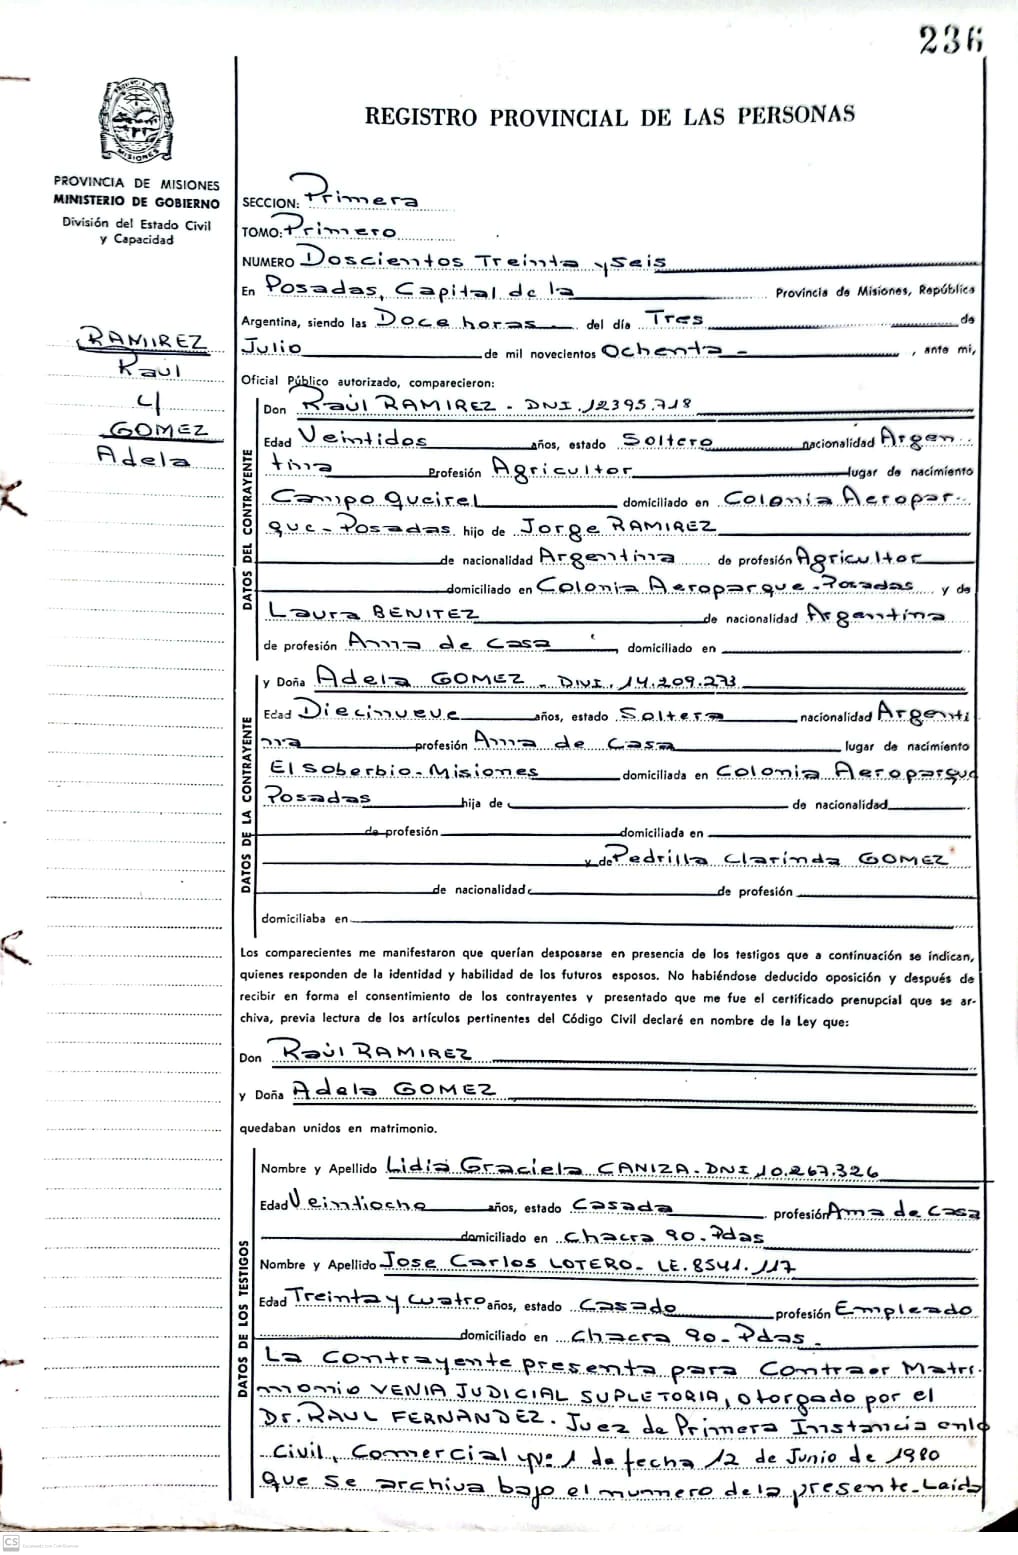 236
REGISTRO PROVINCIAL DE LAS PERSONAS
PROVINCIA DE MISIONES
MINISTERIO DE GOBIERNO
División del Estado Civil
y Capacidad
RAMIREZ
Raul
y
GOMEZ
Adela
SECCION: Primera
TOMO: Primero
NUMERO Doscientos Treinta y Seis
En Posadas, Capital de la Provincia de Misiones, República
Argentina, siendo las Doce horas del día Tres de
Julio de mil novecientos Ochenta - , ante mi,
Oficial Público autorizado, comparecieron:
DATOS DEL CONTRAYENTE
Don Raúl RAMIREZ - DNI. 12395.718
Edad Veintidos años, estado Soltero nacionalidad Argen
tina Profesión Agricultor lugar de nacimiento
Campo Queirel domiciliado en Colonia Aeropar-
que - Posadas hijo de Jorge RAMIREZ
de nacionalidad Argentina de profesión Agricultor
domiciliado en Colonia Aeroparque - Posadas y de
Laura BENITEZ de nacionalidad Argentina
de profesión Ama de Casa , domiciliado en
DATOS DE LA CONTRAYENTE
y Doña Adela GOMEZ - DNI. 14.209.273
Edad Diecinueve años, estado Soltera nacionalidad Argenti
na profesión Ama de Casa lugar de nacimiento
El Soberbio - Misiones domiciliada en Colonia Aeroparque
Posadas hija de de nacionalidad
de profesión domiciliada en
y de Pedrilla Clarinda GOMEZ
de nacionalidad de profesión
domiciliaba en
Los comparecientes me manifestaron que querían desposarse en presencia de los testigos que a continuación se indican,
quienes responden de la identidad y habilidad de los futuros esposos. No habiéndose deducido oposición y después de
recibir en forma el consentimiento de los contrayentes y presentado que me fue el certificado prenupcial que se ar-
chiva, previa lectura de los artículos pertinentes del Código Civil declaré en nombre de la Ley que:
Don Raúl RAMIREZ
y Doña Adela GOMEZ
quedaban unidos en matrimonio.
DATOS DE LOS TESTIGOS
Nombre y Apellido Lidia Graciela CANIZA - DNI 10.267.326
Edad Veintiocho años, estado Casada profesión Ama de Casa
domiciliado en chacra 90 - Pdas
Nombre y Apellido Jose Carlos LOTERO - LE. 8541.117
Edad Treinta y cuatro años, estado Casado profesión Empleado
domiciliado en chacra 90 - Pdas -
La Contrayente presenta para Contraer Matri-
monio VENIA JUDICIAL SUPLETORIA, otorgado por el
Dr. RAUL FERNANDEZ. Juez de Primera Instancia en lo
Civil, Comercial Nº: 1 de fecha 12 de Junio de 1980
que se archiva bajo el numero de la presente - Leida
CS